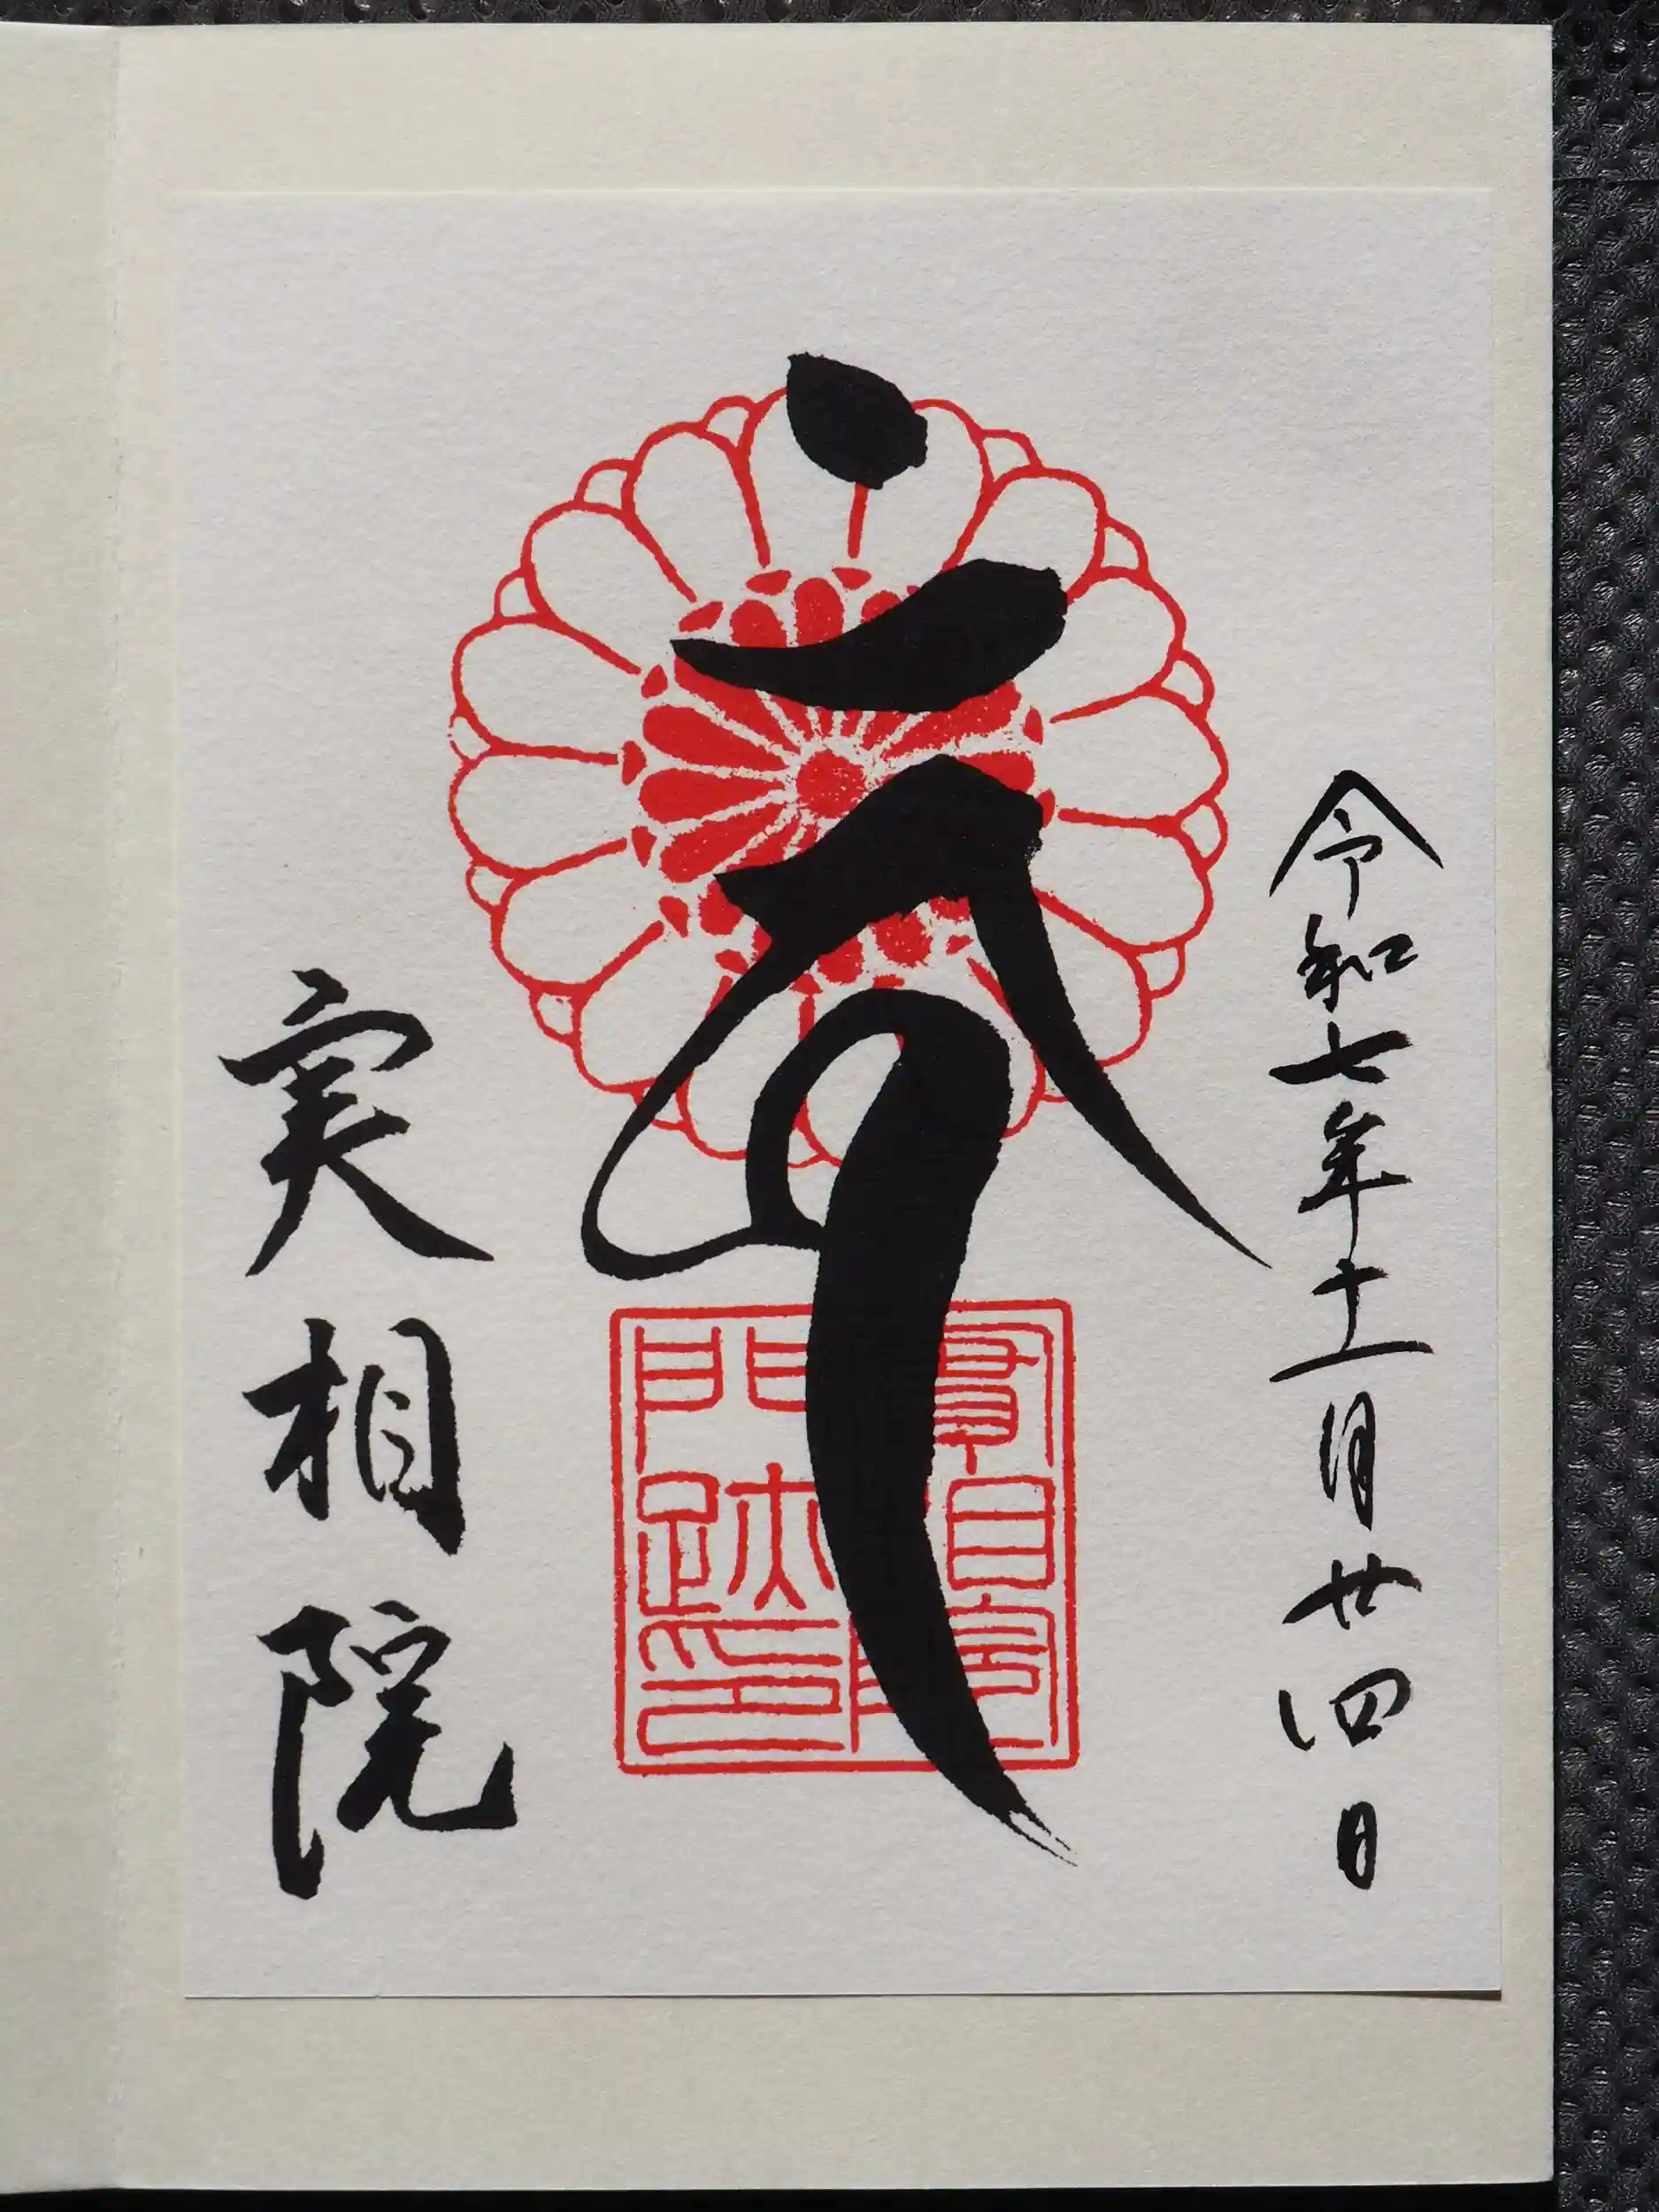 令和七年十一月廿四日
門跡印
実相院